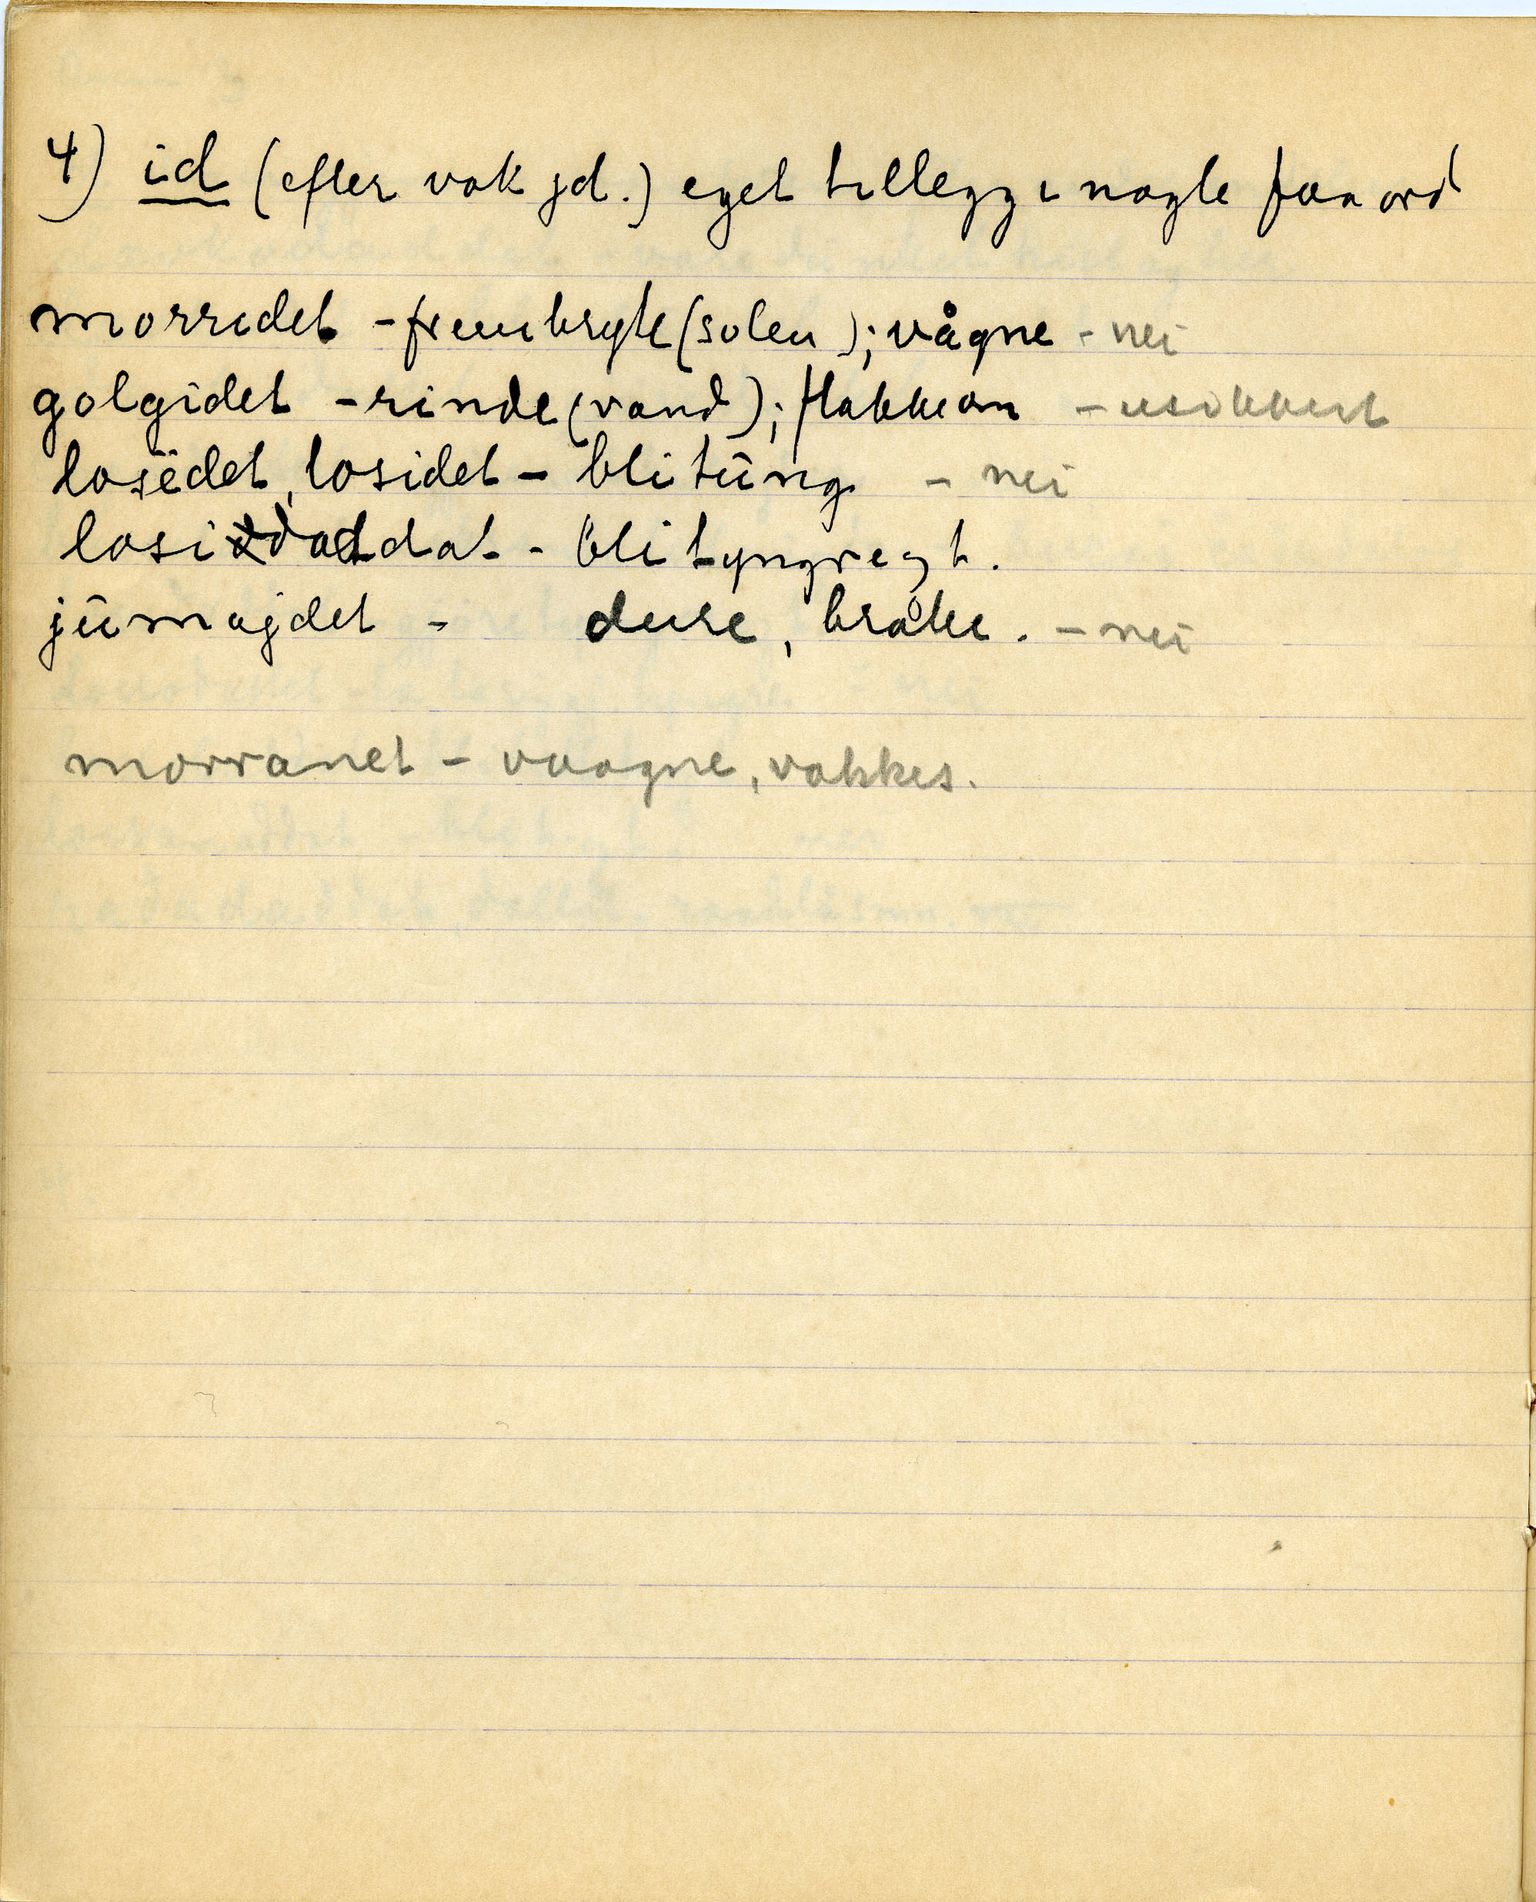 4) id (efter vok jd.) eget tillegg i nogle faa ord
morridet - frembryte (solen); vågne - nei
golgidet - rinde (vand); flakke om - usikkert
losëdet, losidet - bli tūng - nei
losi dat - bli tyngre gt.
jūmajdet - dure, bråke. - nei
morranet - vaagne, vakkes.